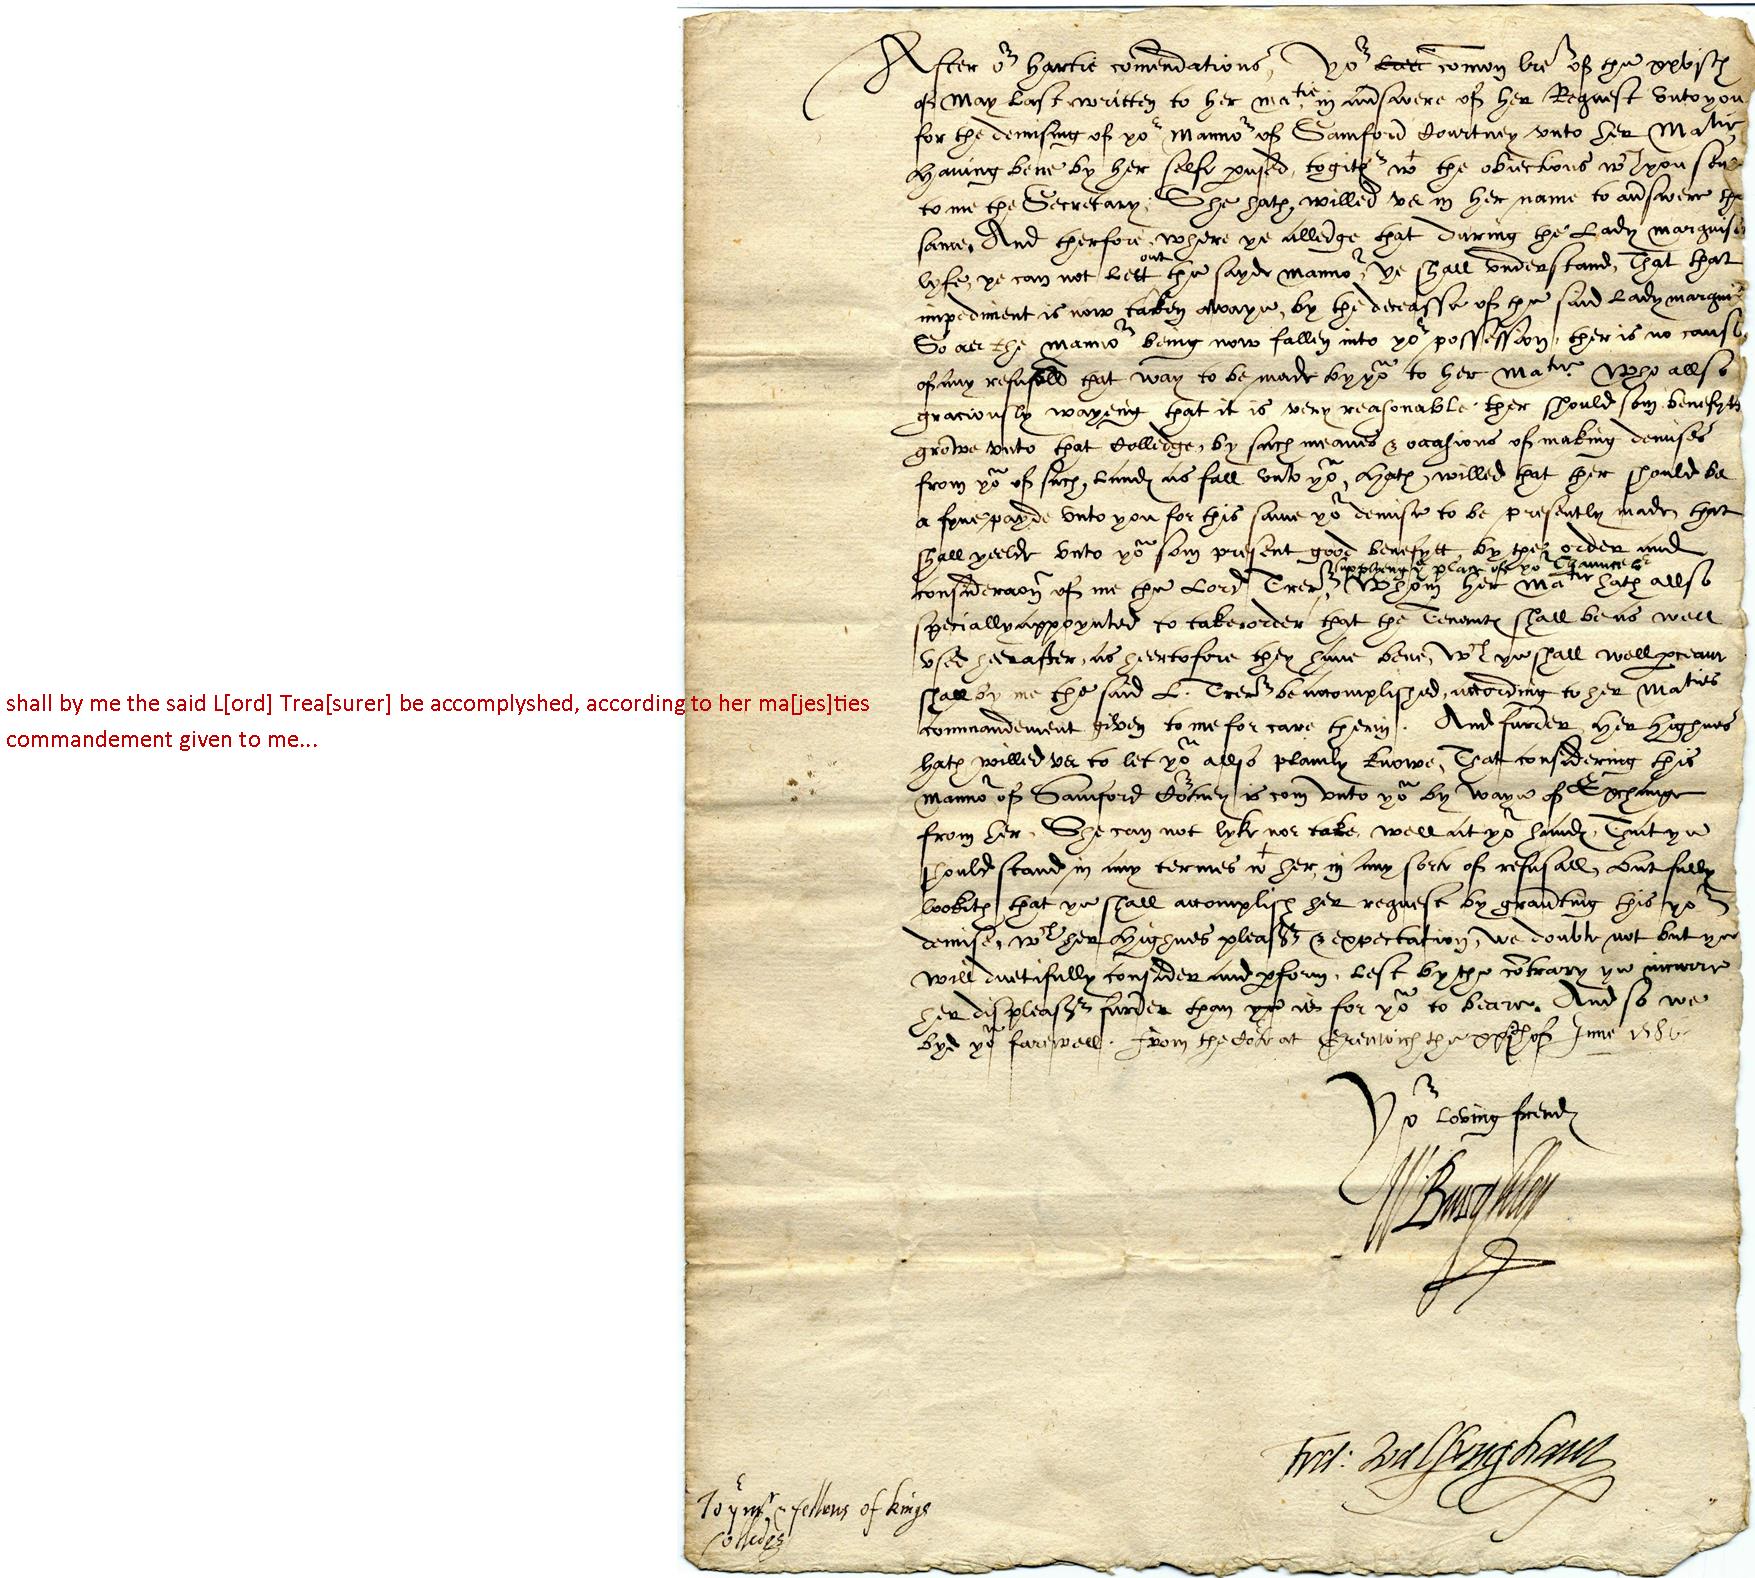 After or hartie comendations, Yor Last comon lre of the xxvjth
of May Last written to her matie in answere of her Request unto you
for the demising of yor Mannor of Samford Courtney unto her Matie
Having bene by her selfe pused, togithr wt the obiections wch you sent
to me the Secretary. She hath willed us in her name to answere the
same, And therfore where ye alledge that during the Lady marquise
lyfe, ye can not Lett out the sayde mannor, Ye shall understand, That that
impediment is now taken awaye, by the deceasse of the said Lady marquise
So as the mannor being now fallen into yor possession, ther is no cause
of any refusall that way to be made by you to her Matie. Who allso
graciously wayeng that it is very reasonable ther should som benefytt
growe unto that Colledge, by such meanes & occasions of making demises
from you of such Lands as fall unto you, Hath willed that ther should be
a fyne payde unto you for this same yor demise to be presently made, that
shall yeelde unto you som present good benefytt, by the order and
supplieng ye place of yor Chauncelr
consideracon of me the Lord Trer, Whom her Matie hath allso
specially appoynted to take order that the Tenants shall be as well
used heerafter, as heertofore they have bene, wch ye shall well pceave
shall by me the said L. Trer be accomplished, according to her Maties
shall by me the said L[ord] Trea[surer] be accomplyshed, according to her ma[jes]ties
commandement given to me for care therin. And furder, Her Highnes
commandement given to me...
hath willed us to let you allso plainly knowe, That considering this
mannor of Samford Cortney is com unto you by waye of Exchange
from her, She can not lyke nor take well at yor hands, That ye
should stand in any termes wt her, in any sorte of refusall, but fully
lookith that ye shall accomplish her request by graunting this yor
demise, wch her Highnes pleasr & expectation, we doubte not but ye
will duetifully consider and pform, Lest by the contrary ye incurre
her displeasr furder than is for you to beare. And so we
byd you farewell. From the Cort at Grenwich the of June 1586
Yor Loving frends
W Burghley
Fra: Walsyngham
To ye mr & fellows of kings
Colledge